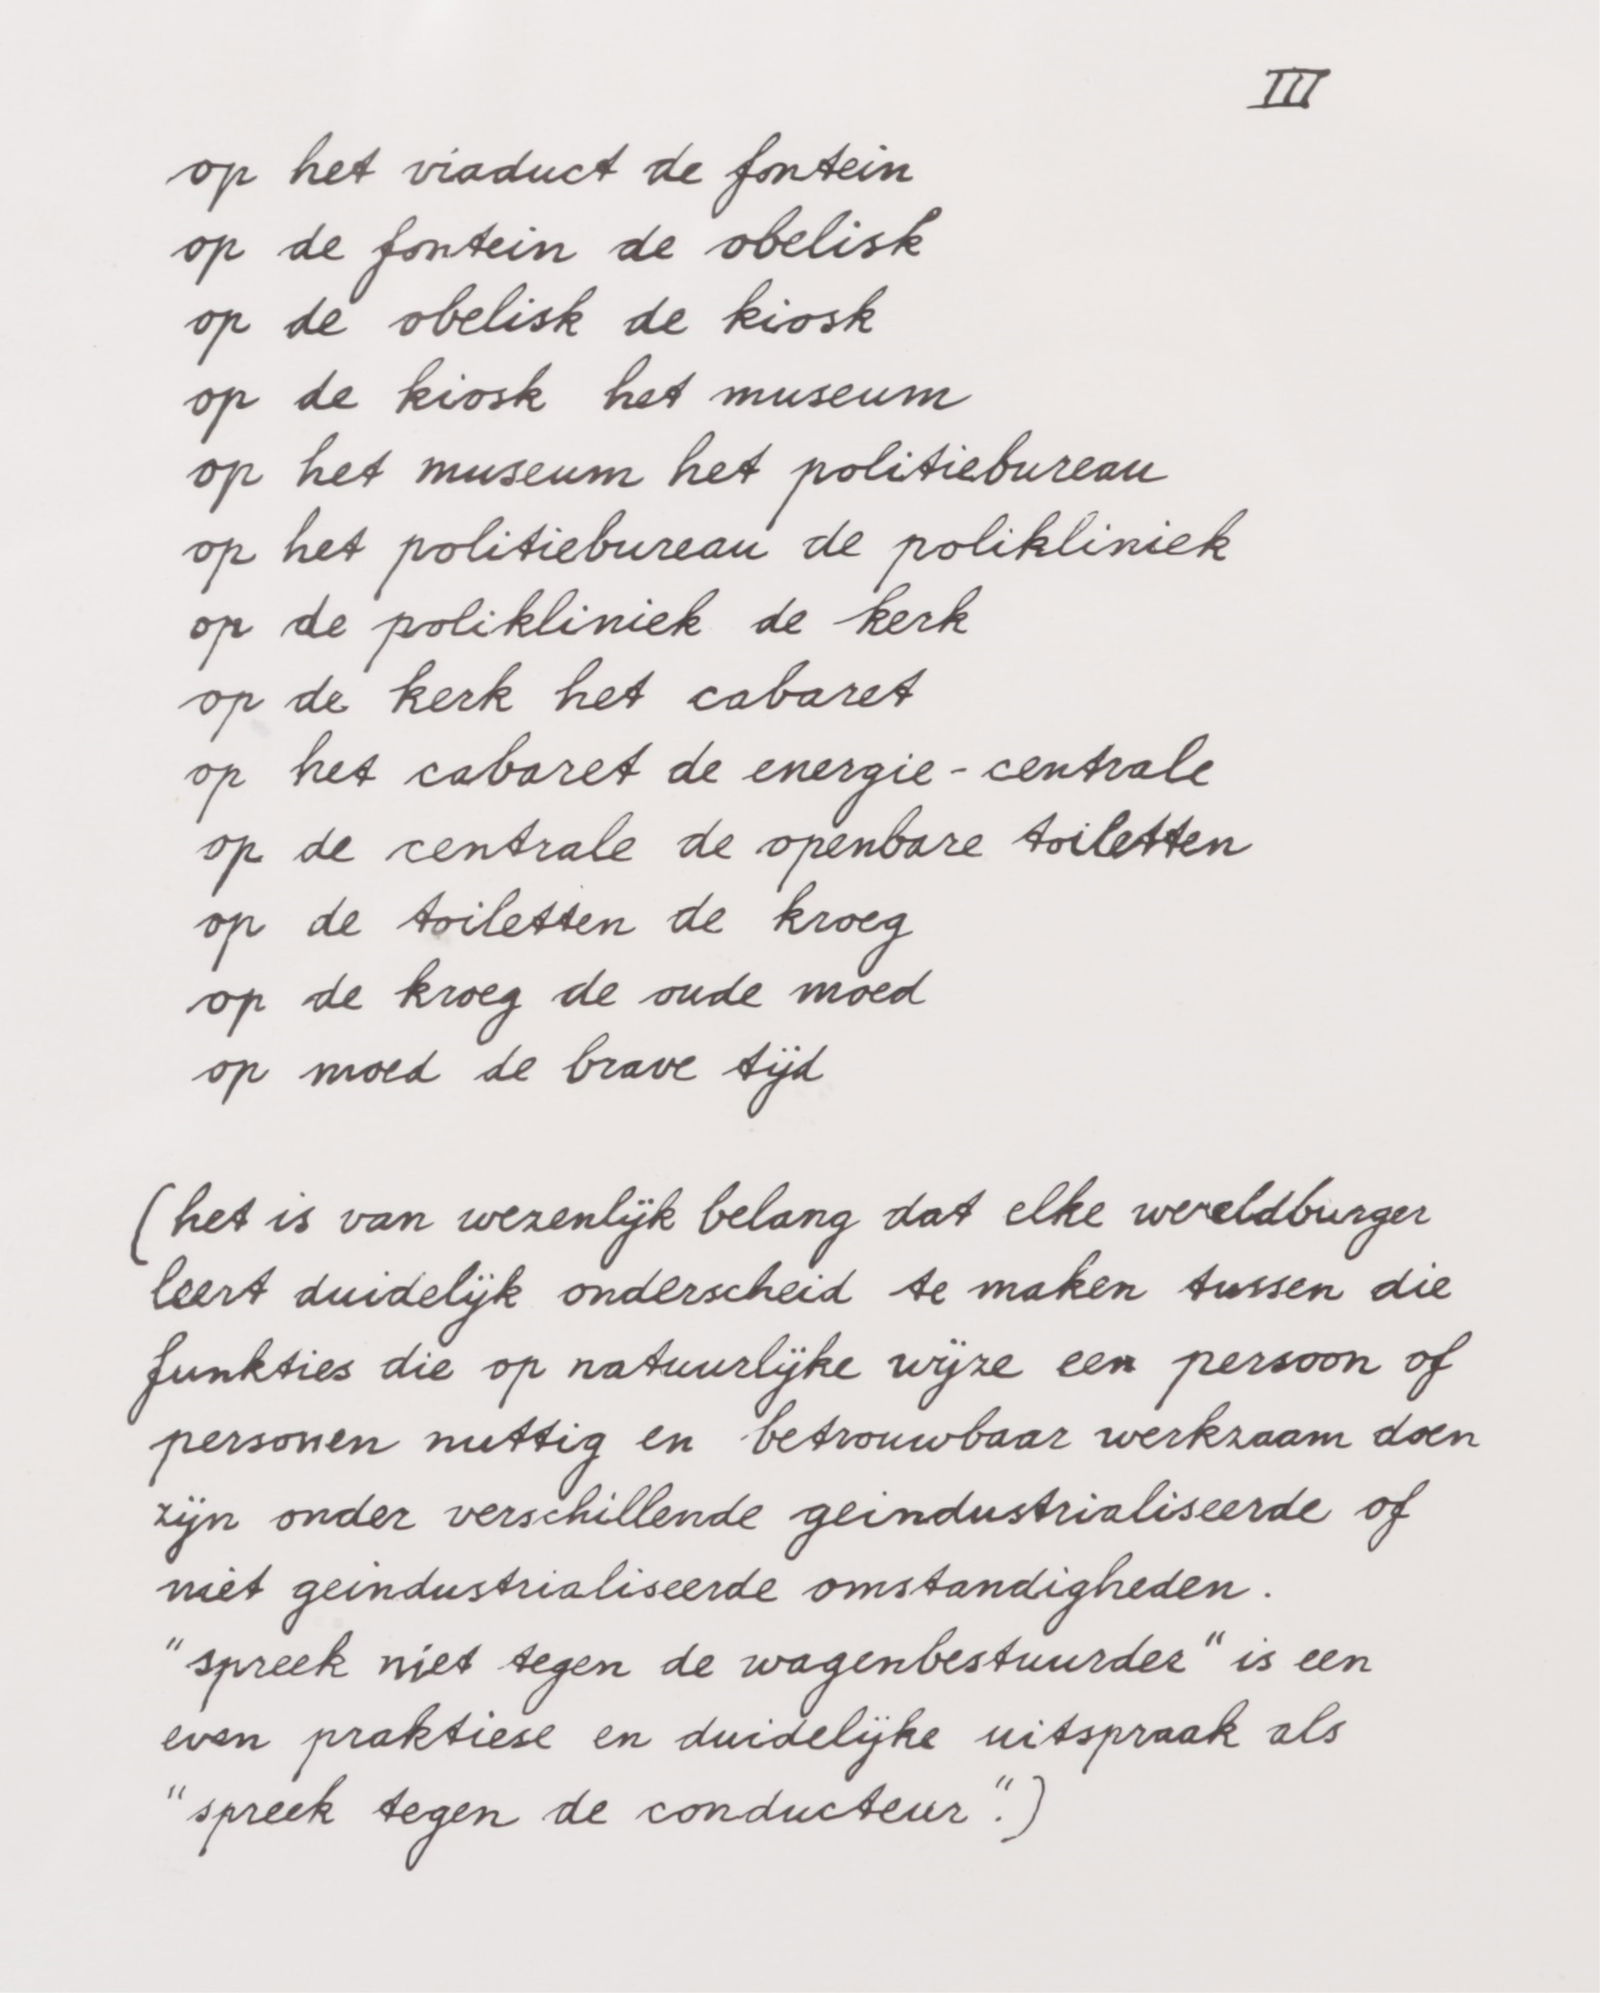 III
op het viaduct de fontein
op de fontein de obelisk
op de obelisk de kiosk
op de kiosk het museum
op het museum het politiebureau
op het politiebureau de polikliniek
op de polikliniek de kerk
op de kerk het cabaret
op het cabaret de energie-centrale
op de centrale de openbare toiletten
op de toiletten de kroeg
op de kroeg de oude moed
op moed de brave tijd
(het is van wezenlijk belang dat elke wereldburger
leert duidelijk onderscheid te maken tussen die
funkties die op natuurlijke wijze een persoon of
personen nuttig en betrouwbaar werkzaam doen
zijn onder verschillende geindustrialiseerde of
niet geindustrialiseerde omstandigheden.
"spreek niet tegen de wagenbestuurder" is een
even praktiese en duidelijke uitspraak als
"spreek tegen de conducteur".)